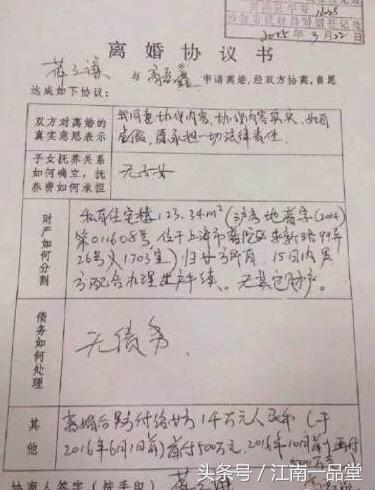 2015年9月22日
离婚协议书
与 申请离婚,经双方协商,自愿
达成如下协议:
双方对离婚的
真实意思表示
我同意协议内容,协议内容真实,如有
虚假,愿承担一切法律责任.
子女抚养关系
如何确立,抚
养费如何承担
无子女
财产如何分割
私有住宅楼123.34m²(沪房地普字(2014)
第011608号,位于上海市普陀区 新路99弄
26号 1703室)归女方所有,15日内男
方配合办理 手续。无其它财产。
债务如何处理
无债务.
其他
离婚后男付给女方1千万元人民币(于
2016年6月1日前)首付500万元,2016年10月前再付
协商人签字(按手印)
头条号/江南一品堂